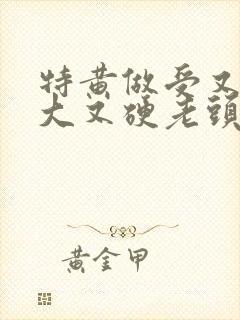 特黄做受又
大又硬老頭
黄金甲